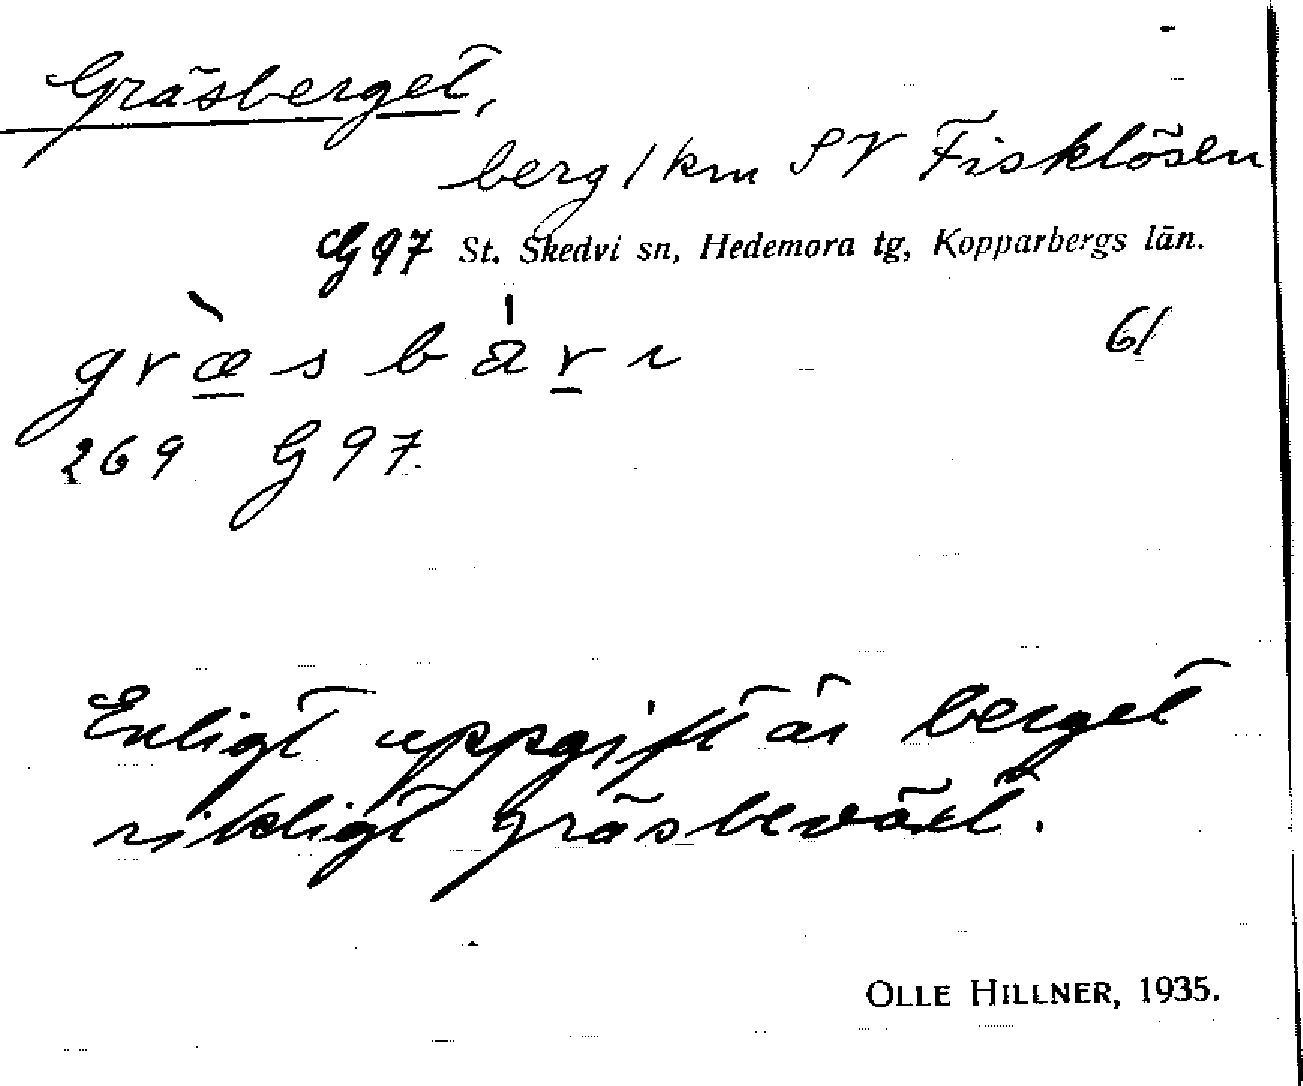 Gräsberget,
berg 1 km SV Fisklösen
G 97 St. Skedvi sn, Hedemora tg, Kopparbergs län.
61
269 G 97.
Enligt uppgift är berget
rikligt gräsbeväxt.
OLLE HILLNER, 1935.